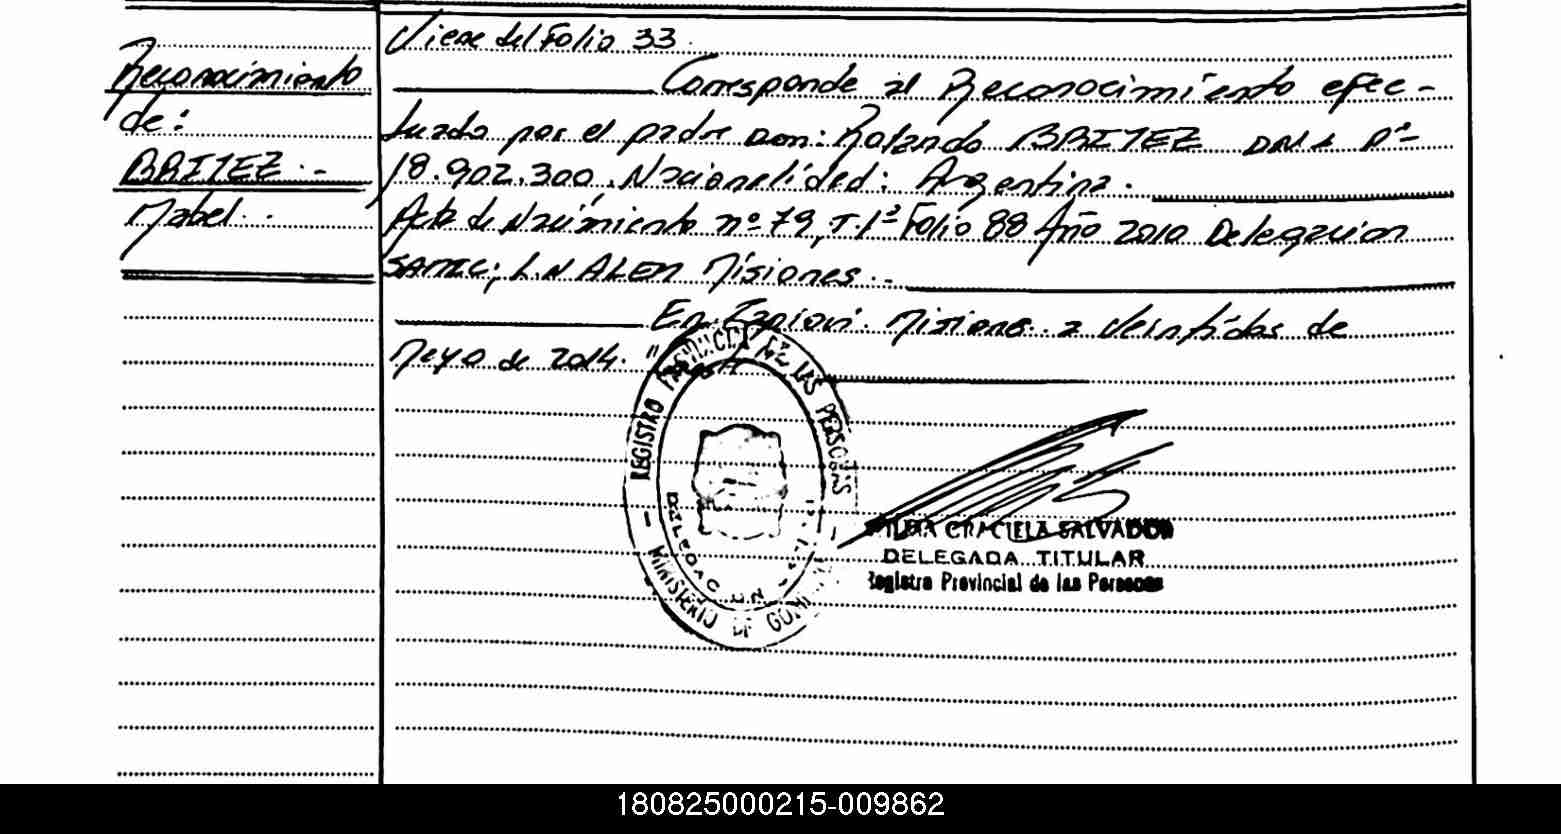 Reconocimiento
de:
BRITEZ.-
Mabel.
Viene del Folio 33.
Corresponde al Reconocimiento efec-
tuado por el padre Don: Rolando BRITEZ DNI nº-
18.902.300. Nacionalidad: Argentina.
Acta de Nacimiento nº 79, T.1º Folio 88 Año 2010 Delegacion
SAMIC; L.N ALEM Misiones.-
En Capiovi. Misiones a Veintidos de
Mayo de 2014.
REGISTRO PROVINCIAL DE LAS PERSONAS
DELEGACION
MINISTERIO DE
GRACIELA SALVADOR
DELEGADA TITULAR
Registro Provincial de las Personas
180825000215-009862